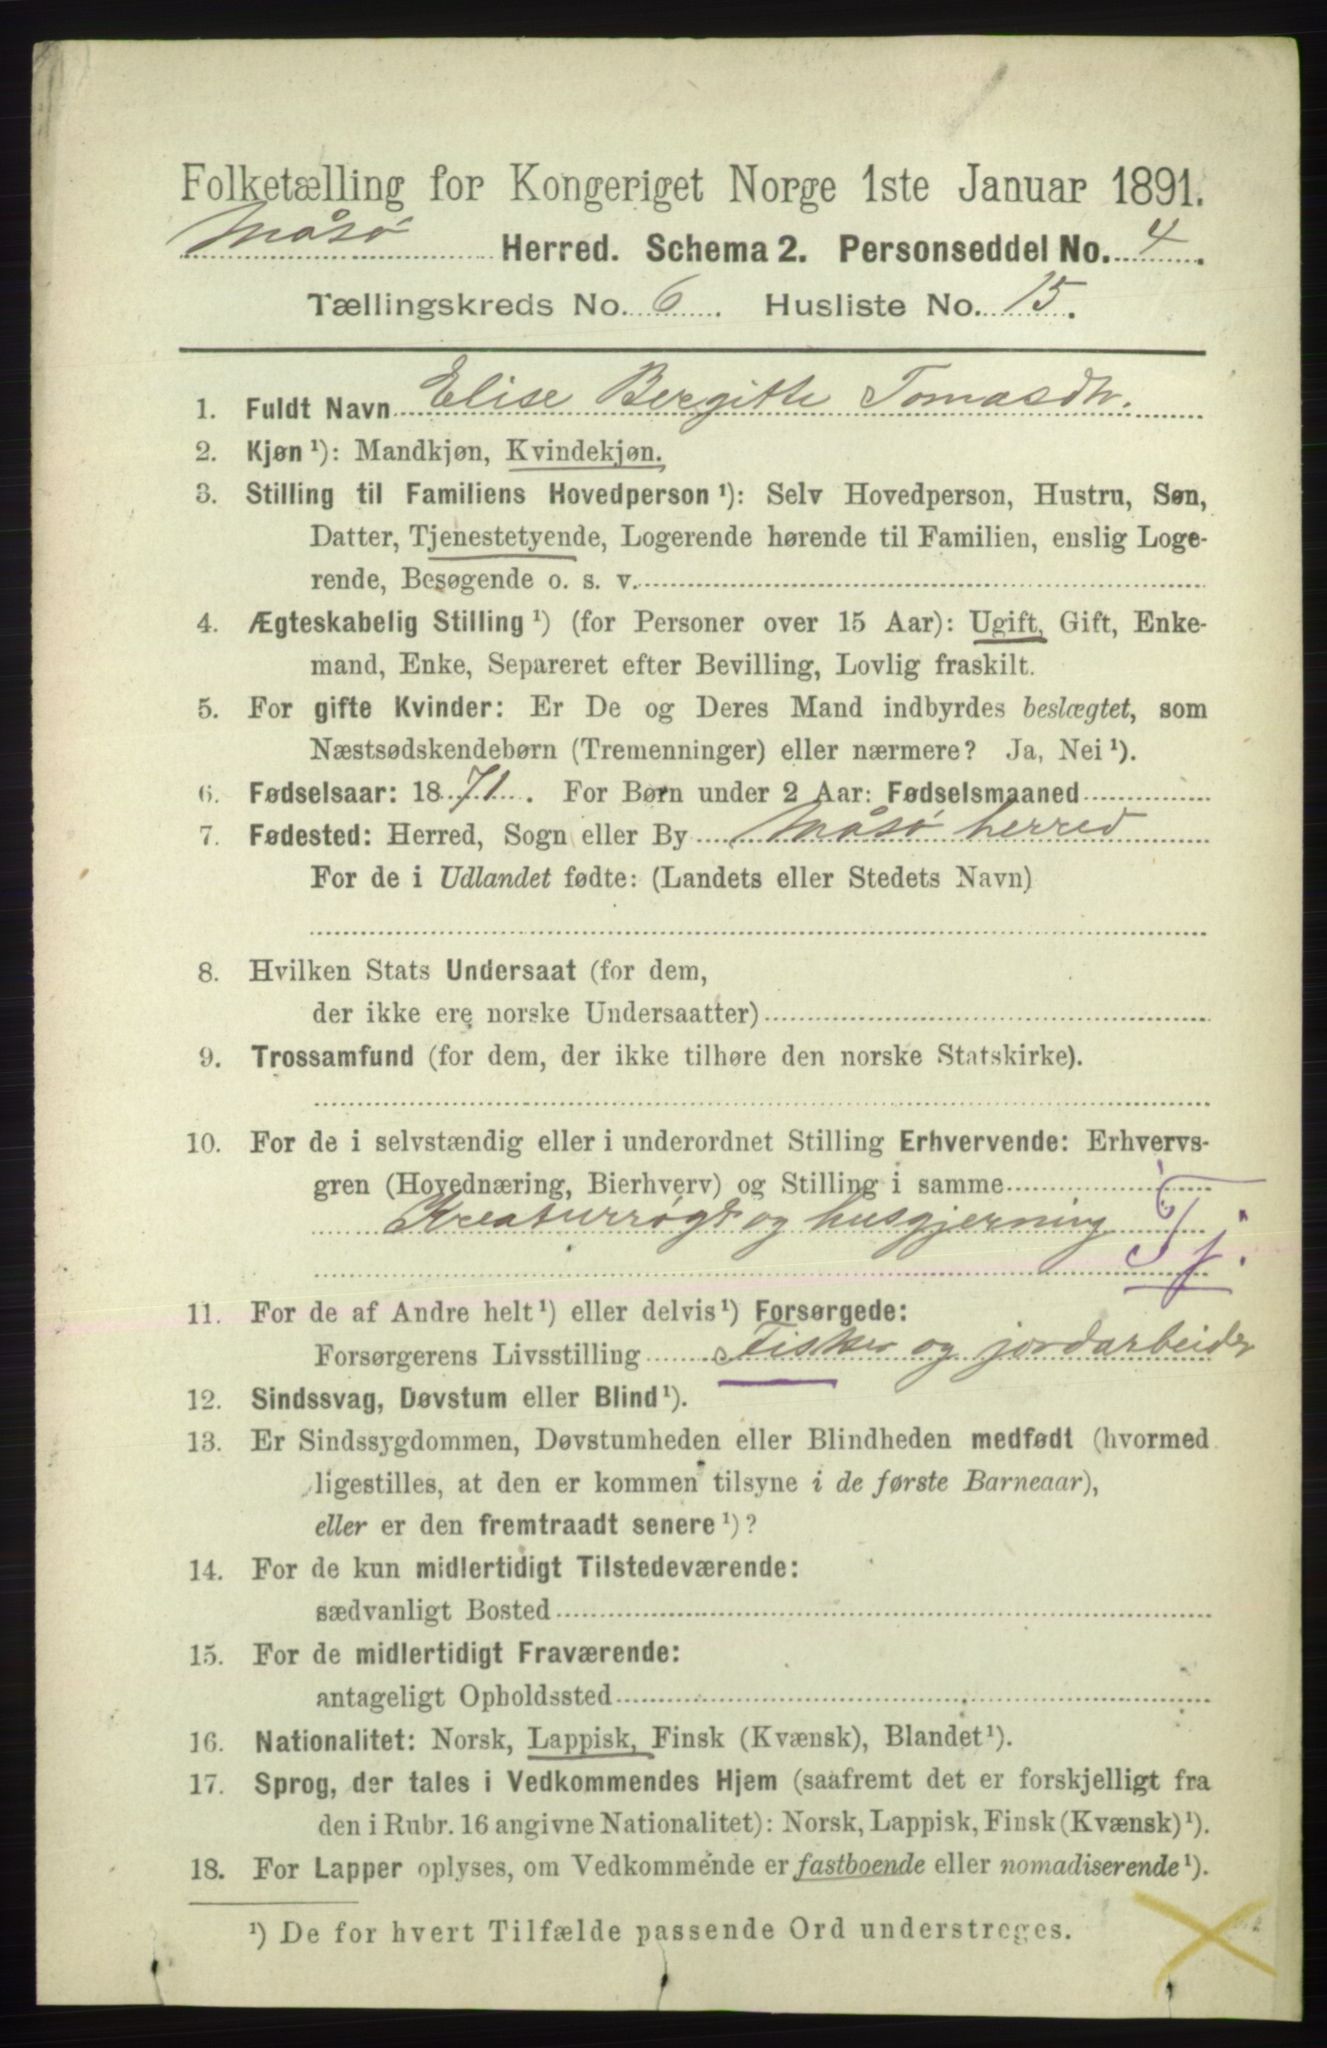 Folketælling for Kongeriget Norge 1ste Januar 1891.
Måsø Herred. Schema 2. Personseddel No. 4.
Tællingskreds No. 6. Husliste No. 15.
1. Fuldt Navn Elise Bergitte Tomasdtr.
2. Kjøn ¹): Mandkjøn, Kvindekjøn.
3. Stilling til Familiens Hovedperson ¹): Selv Hovedperson, Hustru, Søn,
Datter, Tjenestetyende, Logerende hørende til Familien, enslig Loge-
rende, Besøgende o. s. v.
4. Ægteskabelig Stilling ¹) (for Personer over 15 Aar): Ugift, Gift, Enke-
mand, Enke, Separeret efter Bevilling, Lovlig fraskilt.
5. For gifte Kvinder: Er De og Deres Mand indbyrdes beslægtet, som
Næstsødskendebørn (Tremenninger) eller nærmere? Ja, Nei ¹).
6. Fødselsaar: 1871. For Børn under 2 Aar: Fødselsmaaned
7. Fødested: Herred, Sogn eller By Måsø herred
For de i Udlandet fødte: (Landets eller Stedets Navn)
8. Hvilken Stats Undersaat (for dem,
der ikke ere norske Undersaatter)
9. Trossamfund (for dem, der ikke tilhøre den norske Statskirke).
10. For de i selvstændig eller i underordnet Stilling Erhvervende: Erhvervs-
gren (Hovednæring, Bierhverv) og Stilling i samme
Kreaturrøgt og husgjerning Tj.
11. For de af Andre helt ¹) eller delvis ¹) Forsørgede:
Forsørgerens Livsstilling Fisker og jordarbeider
12. Sindssvag, Døvstum eller Blind ¹).
13. Er Sindssygdommen, Døvstumheden eller Blindheden medfødt (hvormed
ligestilles, at den er kommen tilsyne i de første Barneaar),
eller er den fremtraadt senere ¹)?
14. For de kun midlertidigt Tilstedeværende:
sædvanligt Bosted
15. For de midlertidigt Fraværende:
antageligt Opholdssted
16. Nationalitet: Norsk, Lappisk, Finsk (Kvænsk), Blandet ¹).
17. Sprog, der tales i Vedkommendes Hjem (saafremt det er forskjelligt fra
den i Rubr. 16 angivne Nationalitet): Norsk, Lappisk, Finsk (Kvænsk) ¹).
18. For Lapper oplyses, om Vedkommende er fastboende eller nomadiserende ¹).
¹) De for hvert Tilfælde passende Ord understreges.